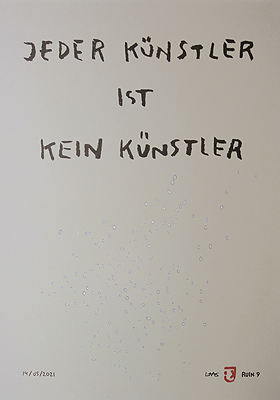 JEDER KÜNSTLER
IST
KEIN KÜNSTLER
14/05/2021
RUIN 9